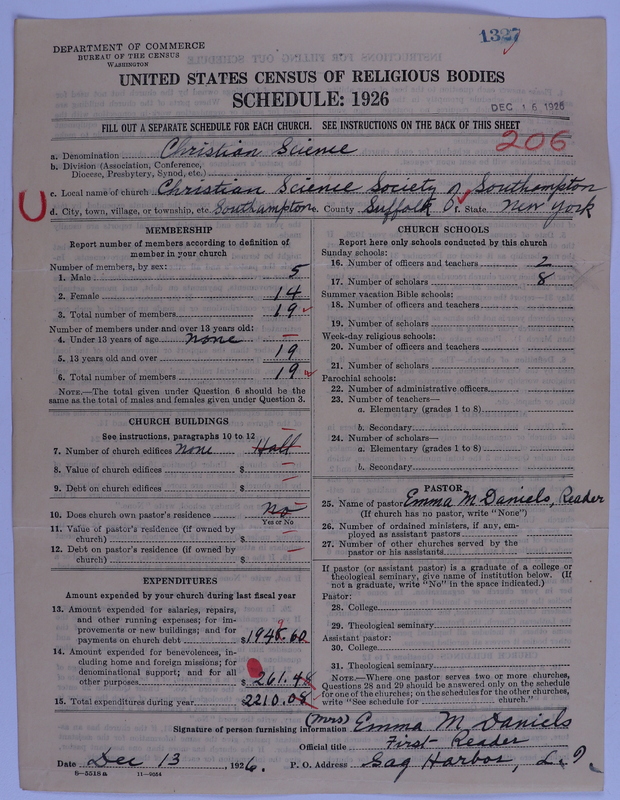 1327
DEPARTMENT OF COMMERCE
BUREAU OF THE CENSUS
WASHINGTON
UNITED STATES CENSUS OF RELIGIOUS BODIES
SCHEDULE: 1926
DEC 16 1926
FILL OUT A SEPARATE SCHEDULE FOR EACH CHURCH. SEE INSTRUCTIONS ON THE BACK OF THIS SHEET
206
a. Denomination Christian Science
b. Division (Association, Conference, Diocese, Presbytery, Synod, etc.)
c. Local name of church Christian Science Society of Southampton
d. City, town, village, or township, etc. Southampton e. County Suffolk f. State New York
MEMBERSHIP
Report number of members according to definition of
member in your church
Number of members, by sex:
1. Male 5
2. Female 14
3. Total number of members 19
Number of members under and over 13 years old:
4. Under 13 years of age none —
5. 13 years old and over 19
6. Total number of members 19
NOTE.—The total given under Question 6 should be
same as the total of males and females given under Question 3.
CHURCH BUILDINGS
See instructions, paragraphs 10 to 12
7. Number of church edifices None Hall
8. Value of church edifices $ —
9. Debt on church edifices $ —
10. Does church own pastor's residence No
Yes or No
11. Value of pastor's residence (if owned by
church) $ —
12. Debt on pastor's residence (if owned by
church) $ —
EXPENDITURES
Amount expended by your church during last fiscal year
13. Amount expended for salaries, repairs,
and other running expenses; for im-
provements or new buildings; and for
payments on church debt $1948.60
14. Amount expended for benevolences, in-
cluding home and foreign missions; for
denominational support; and for all
other purposes $261.48
15. Total expenditures during year $2210.08
CHURCH SCHOOLS
Report here only schools conducted by this church
Sunday schools:
16. Number of officers and teachers 2
17. Number of scholars 8
Summer vacation Bible schools:
18. Number of officers and teachers
19. Number of scholars
Week-day religious schools:
20. Number of officers and teachers
21. Number of scholars
Parochial schools:
22. Number of administrative officers
23. Number of teachers—
a. Elementary (grades 1 to 8)
b. Secondary
24. Number of scholars—
a. Elementary (grades 1 to 8)
b. Secondary
PASTOR
25. Name of pastor Emma M Daniels, Reader
(If church has no pastor, write "None")
26. Number of ordained ministers, if any, em-
ployed as assistant pastors
27. Number of other churches served by the
pastor or his assistants
If pastor (or assistant pastor) is a graduate of a college or
theological seminary, give name of institution below. (If
not a graduate, write "No" in the space indicated.)
Pastor:
28. College
29. Theological seminary
Assistant pastor:
30. College
31. Theological seminary
NOTE.—Where one pastor serves two or more churches,
Questions 28 and 29 should be answered only on the schedule
for one of the churches; on the schedules for the other churches,
write "See schedule for church."
Signature of person furnishing information (Mrs) Emma M Daniels
Official title First Reader
Date Dec 13, 1926. P. O. Address Sag Harbor, L. I.
8—5518a 11—9054